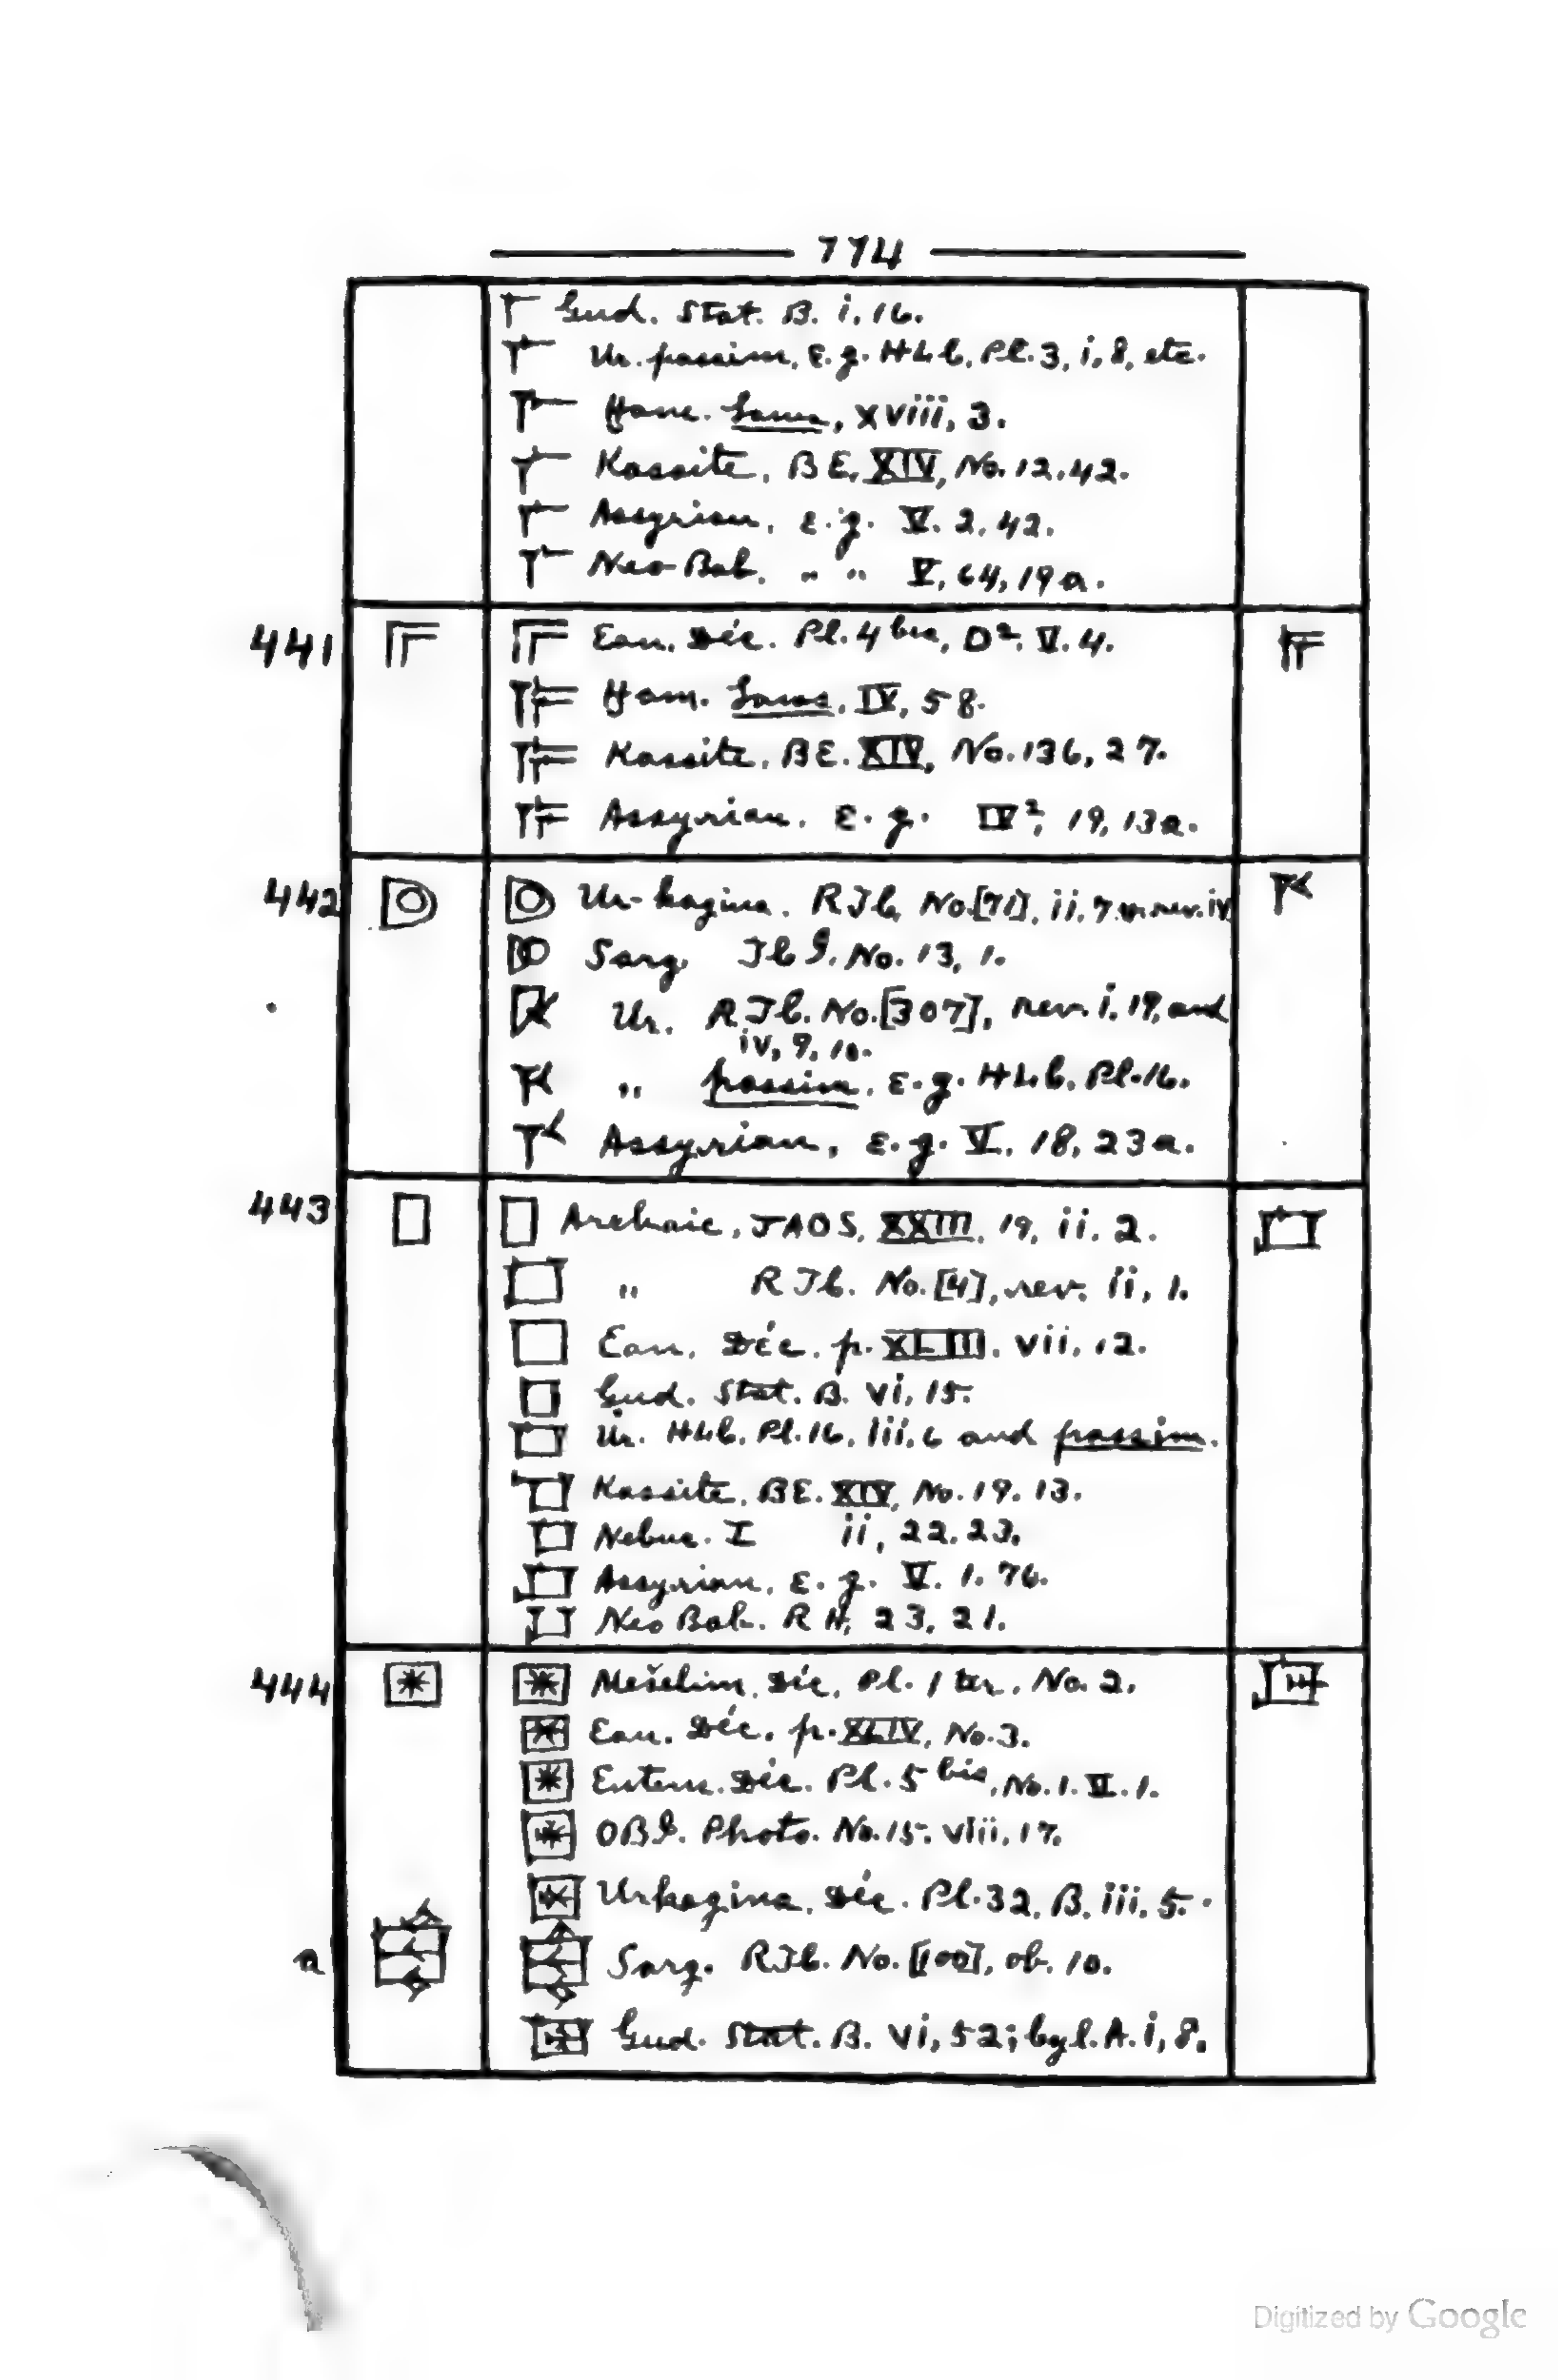 114
Gud. Stat. B. i, 16.
Ur. passim, E.g. HLC, Pl. 3, i, 8, etc.
Ham. Laws, xviii, 3.
Kassite, BE, XIV, No. 12, 42.
Assyrian, e.g. V. 2, 42.
Neo-Bab. " " V, 64, 19a.
441 Ean. Déc. Pl. 4 bis, D². V. 4.
Ham. Laws, IV, 58.
Kassite, BE. XIV, No. 136, 27.
Assyrian. E.g. IV², 19, 13a.
442 Ur-kagina. RTC, No. [71], ii, 7. rev. iv
Sarg. No. 13, 1.
Ur. RTC. No. [307], rev. i, 19, and
iv, 9, 10.
" passim, E.g. HLC. Pl. 16.
Assyrian, E.g. V, 18, 23a.
443 Archaic, JAOS, XXIII, 19, ii, 2.
" RTC. No. [4], rev. ii, 1.
Ean. Déc. p. XLIII. vii, 12.
Gud. Stat. B. vi, 15.
Ur. HLC. Pl. 16, iii, 6 and passim.
Kassite, BE. XIV, No. 19. 13.
Nebuc. I ii, 22. 23.
Assyrian, E.g. V. 1. 76.
Neo Bab. RH, 23, 21.
444 Mešelim. Déc. Pl. 1 ter. No. 2.
Ean. Déc. p. XLIV, No. 3.
Entem. Déc. Pl. 5 bis, No. 1. II. 1.
OBI. Photo. No. 15. viii, 17.
Urkagina. Déc. Pl. 32, B. iii, 5.
a Sarg. RTC. No. [100], ob. 10.
Gud. Stat. B. vi, 52; Cyl. A. i, 8.
Digitized by Google